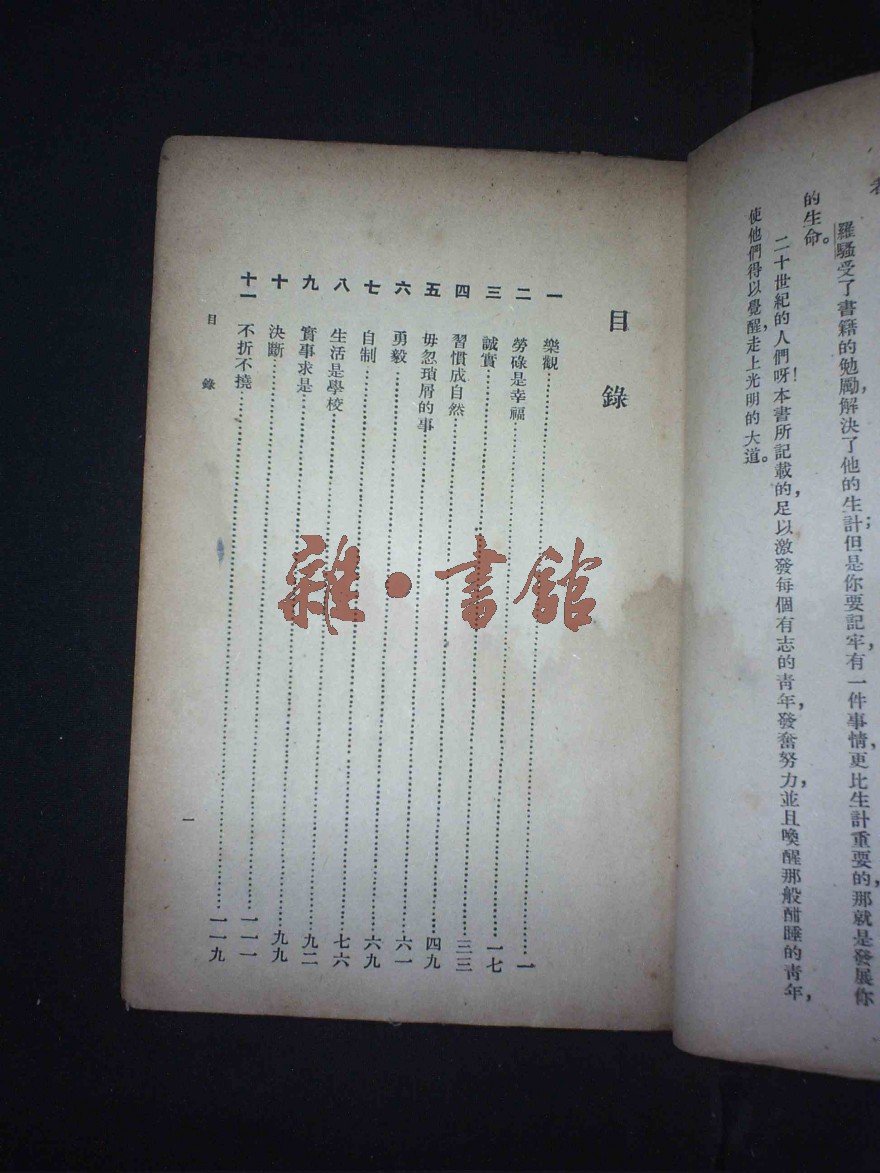 羅騷受了書籍的勉勵,解決了他的生計;但是你要記牢,有一件事情,更比生計重要的,那就是發展你
的生命。
二十世紀的人們呀!本書所記載的,足以激發每個有志的靑年,發奮努力,並且喚醒那般酣睡的靑年,
使他們得以覺醒,走上光明的大道。
目錄
一 樂觀……一
二 勞碌是幸福……一七
三 誠實……三三
四 習慣成自然……四九
五 毋忽瑣屑的事……六一
六 勇毅……六九
七 自制……七六
八 生活是學校……九二
九 實事求是……九九
十 決斷……一一一
十一 不折不撓……一一九
目錄
一
雜·書館